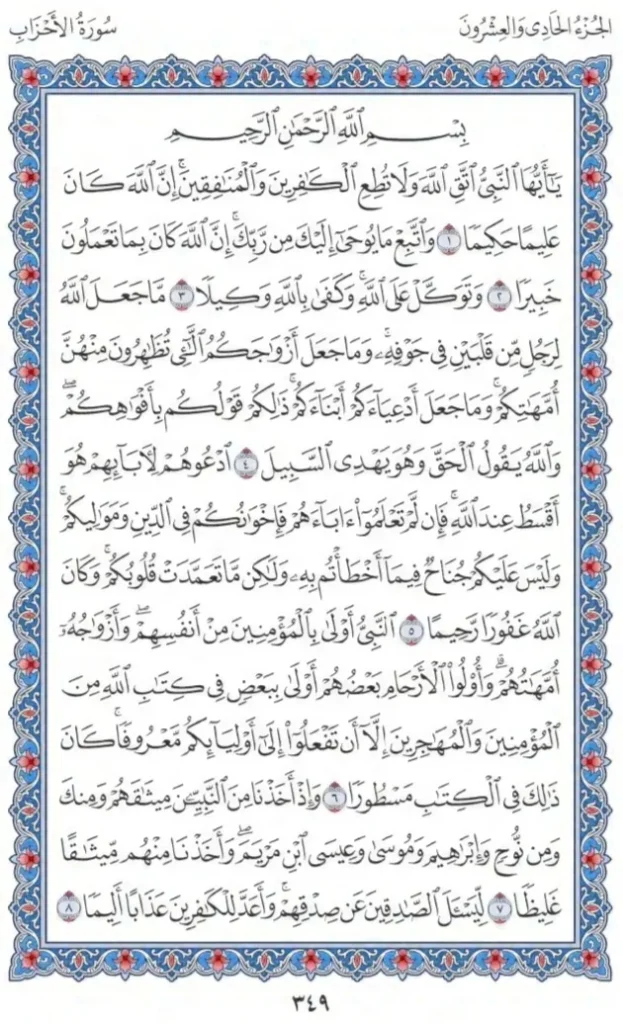 الجُزْءُ الحَادِى وَالعِشْرُونَ
سُورَةُ الأَحْزَابِ
بِسْمِ ٱللَّهِ ٱلرَّحْمَٰنِ ٱلرَّحِيمِ
يَٰٓأَيُّهَا ٱلنَّبِىُّ ٱتَّقِ ٱللَّهَ وَلَا تُطِعِ ٱلْكَٰفِرِينَ وَٱلْمُنَٰفِقِينَۚ إِنَّ ٱللَّهَ كَانَ
عَلِيمًا حَكِيمًا ١ وَٱتَّبِعْ مَا يُوحَىٰٓ إِلَيْكَ مِن رَّبِّكَۚ إِنَّ ٱللَّهَ كَانَ بِمَا تَعْمَلُونَ
خَبِيرًا ٢ وَتَوَكَّلْ عَلَى ٱللَّهِۚ وَكَفَىٰ بِٱللَّهِ وَكِيلًا ٣ مَّا جَعَلَ ٱللَّهُ
لِرَجُلٍ مِّن قَلْبَيْنِ فِى جَوْفِهِۦۚ وَمَا جَعَلَ أَزْوَٰجَكُمُ ٱلَّٰٓـِٔى تُظَٰهِرُونَ مِنْهُنَّ
أُمَّهَٰتِكُمْۚ وَمَا جَعَلَ أَدْعِيَآءَكُمْ أَبْنَآءَكُمْۚ ذَٰلِكُمْ قَوْلُكُم بِأَفْوَٰهِكُمْۖ
وَٱللَّهُ يَقُولُ ٱلْحَقَّ وَهُوَ يَهْدِى ٱلسَّبِيلَ ٤ ٱدْعُوهُمْ لِءَابَآئِهِمْ هُوَ
أَقْسَطُ عِندَ ٱللَّهِۚ فَإِن لَّمْ تَعْلَمُوٓا۟ ءَابَآءَهُمْ فَإِخْوَٰنُكُمْ فِى ٱلدِّينِ وَمَوَٰلِيكُمْۚ
وَلَيْسَ عَلَيْكُمْ جُنَاحٌ فِيمَآ أَخْطَأْتُم بِهِۦ وَلَٰكِن مَّا تَعَمَّدَتْ قُلُوبُكُمْۚ وَكَانَ
ٱللَّهُ غَفُورًا رَّحِيمًا ٥ ٱلنَّبِىُّ أَوْلَىٰ بِٱلْمُؤْمِنِينَ مِنْ أَنفُسِهِمْۖ وَأَزْوَٰجُهُۥٓ
أُمَّهَٰتُهُمْۗ وَأُو۟لُوا۟ ٱلْأَرْحَامِ بَعْضُهُمْ أَوْلَىٰ بِبَعْضٍ فِى كِتَٰبِ ٱللَّهِ مِنَ
ٱلْمُؤْمِنِينَ وَٱلْمُهَٰجِرِينَ إِلَّآ أَن تَفْعَلُوٓا۟ إِلَىٰٓ أَوْلِيَآئِكُم مَّعْرُوفًاۚ كَانَ
ذَٰلِكَ فِى ٱلْكِتَٰبِ مَسْطُورًا ٦ وَإِذْ أَخَذْنَا مِنَ ٱلنَّبِيِّـۧنَ مِيثَٰقَهُمْ وَمِنكَ
وَمِن نُّوحٍ وَإِبْرَٰهِيمَ وَمُوسَىٰ وَعِيسَى ٱبْنِ مَرْيَمَۖ وَأَخَذْنَا مِنْهُم مِّيثَٰقًا
غَلِيظًا ٧ لِّيَسْـَٔلَ ٱلصَّٰدِقِينَ عَن صِدْقِهِمْۚ وَأَعَدَّ لِلْكَٰفِرِينَ عَذَابًا أَلِيمًا ٨
٣٤٩